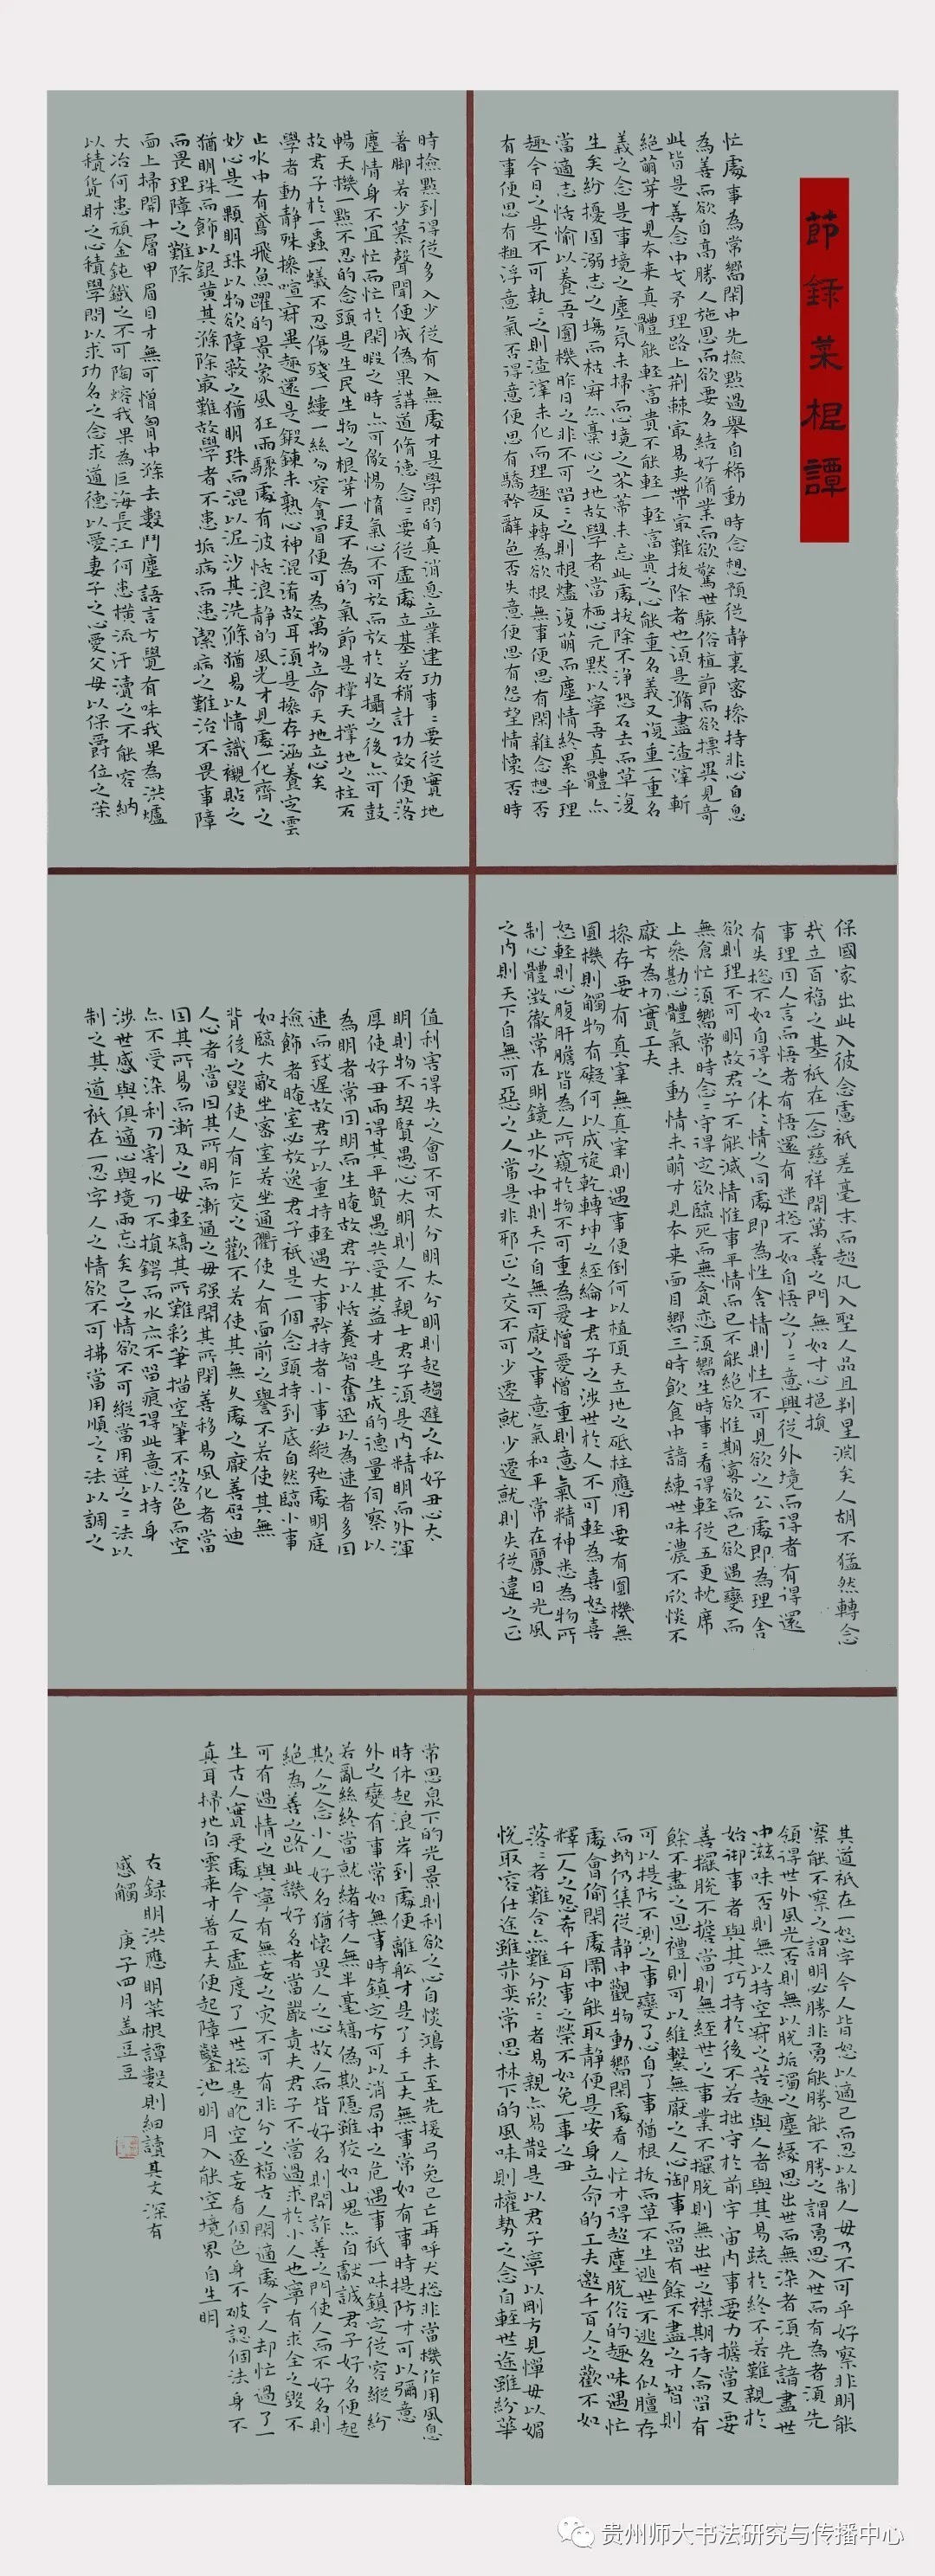 節錄菜根譚
忙處事為常嚮閑中先撿點過舉自稀動時念想預從靜裏密操持非心自息
為善而欲自高勝人施恩而欲要名結好脩業而欲驚世駭俗植節而欲摽異見奇
此皆是善念中戈矛理路上荆棘冣易夾帶冣難拔除者也須是滌盡渣滓斬
絕萌芽才見本来真體能輕富貴不能輕一輕富貴之心能重名義又復重一重名
義之念是事境之塵氛未掃而心境之芥蒂未忘此處拔除不淨恐石去而草復
生矣紛擾固溺志之場而枯寂亦槀心之地故學者當栖心元默以寧吾真體亦
當適志恬愉以養吾圓機昨日之非不可留留之則根燼復萌而塵情終累乎理
趣今日之是不可執執之則渣滓未化而理趣反轉為欲根無事便思有閑雜念想否
有事便思有粗浮意氣否得意便思有驕矜辭色否失意便思有怨望情懷否時
時撿點到得從多入少從有入無處才是學問的真消息立業建功事事要從實地
著脚若少慕聲聞便成偽果講道脩德念念要從虛處立基若稍計功效便落
塵情身不宜忙而忙於閑暇之時亦可儆惕惰氣心不可放而放於收攝之後亦可鼓
暢天機一點不忍的念頭是生民生物之根芽一段不為的氣節是撑天撑地之柱石
故君子於一蟲一蟻不忍傷殘一縷一絲勿容貪冒便可為萬物立命天地立心矣
學者動靜殊操喧寂異趣還是鍛鍊未熟心神混淆故耳須是操存涵養定雲
止水中有鳶飛魚躍的景象風狂雨驟處有波恬浪靜的風光才見處化齊之
妙心是一顆明珠以物欲障蔽之猶明珠而混以泥沙其洗滌猶易以情識襯貼之
猶明珠而飾以銀黄其滌除冣難故學者不患垢病而患潔病之難治不畏事障
而畏理障之難除
面上掃開十層甲眉目才無可憎胷中滌去數鬥塵語言方覺有味我果為洪爐
大冶何患頑金鈍鐵之不可陶熔我果為巨海長江何患橫流汙瀆之不能容納
以積貨財之心積學問以求功名之念求道德以愛妻子之心愛父母以保爵位之策
保國家出此入彼念慮祇差毫末而超凡入聖人品且判星淵矣人胡不猛然轉念
哉立百福之基祇在一念慈祥開萬善之門無如寸心挹損
事理因人言而悟者有悟還有迷総不如自悟之了了意興從外境而得者有得還
有失総不如自得之休休情之同處即為性舍情則性不可見欲之公處即為理舍
欲則理不可明故君子不能滅情惟事平情而已不能絕欲惟期寡欲而已欲遇變而
無倉忙須嚮常時念念守得定欲臨死而無貪恋須嚮生時事事看得輕從五更枕席
上參勘心體氣未動情未萌才見本来面目嚮三時飲食中諳練世味濃不欣淡不
厭方為切實工夫
操存要有真宰無真宰則遇事便倒何以植頂天立地之砥柱應用要有圓機無
圓機則觸物有礙何以成旋乾轉坤之經綸士君子之涉世於人不可輕為喜怒喜
怒輕則心腹肝膽皆為人所窺於物不可重為愛憎愛憎重則意氣精神悉為物所
制心體澂徹常在明鏡止水之中則天下自無可厭之事意氣和平常在麗日光風
之内則天下自無可惡之人當是非邪正之交不可少遷就少遷就則失從違之正
值利害得失之會不可太分明太分明則起趨避之私好丑心太
明則物不契賢愚心太明則人不親士君子須是内精明而外渾
厚使好丑兩得其平賢愚共受其益才是生成的德量伺察以
為明者常因明而生暗故君子以恬養智奮迅以為速者多因
速而致遲故君子以重持輕遇大事矜持者小事必縱弛處明庭
撿飾者暗室必放逸君子祇是一個念頭持到底自然臨小事
如臨大敵坐密室若坐通衢使人有面前之譽不若使其無
背後之毀使人有乍交之歡不若使其無久處之厭善啓迪
人心者當因其所明而漸通之毋强開其所閉善移易風化者當
因其所易而漸及之毋輕矯其所難彩筆描空筆不落色而空
亦不受染利刀割水刀不損鍔而水亦不留痕得此意以持身
涉世感與俱適心與境兩忘矣己之情欲不可縱當用逆之之法以
制之其道祇在一忍字人之情欲不可拂當用順之之法以調之
其道祇在一恕字今人皆恕以適己而忍以制人毋乃不可乎好察非明能
察能不察之謂明必勝非勇能勝能不勝之謂勇思入世而有為者須先
領得世外風光否則無以脱垢濁之塵緣思出世而無染者須先諳盡世
中滋味否則無以持空寂之苦趣與人者與其易疏於終不若難親於
始御事者與其巧持於後不若拙守於前宇宙内事要力擔當又要
善擺脱不擔當則無經世之事業不擺脱則無出世之襟期待人而留有
餘不盡之恩禮則可以維繫無厭之人心御事而留有餘不盡之才智則
可以提防不測之事變了心自了事猶根拔而草不生逃世不逃名似膻存
而蚋仍集從静中觀物動嚮閑處看人忙才得超塵脱俗的趣味遇忙
處會偷閑處鬧中能取静便是安身立命的工夫邀千百人之歡不如
釋一人之怨希千百事之榮不如免一事之丑
落落者難合亦難分欣欣者易親亦易散是以君子寧以剛方見憚毋以媚
悅取容仕途雖赤奕常思林下的風味則權勢之念自輕世途雖紛華
常思泉下的光景則利欲之心自淡鴻未至先援弓兔已亡再呼犬総非當機作用風息
時休起浪岸到處便離舩才是了手工夫無事常如有事時提防才可以彌意
外之變有事常如無事時鎮定方可以消局中之危遇事祇一味鎮定從容縱紛
若亂絲終當就緒待人無半毫矯偽欺隱雖狡如山鬼亦自獻誠君子好名便起
欺人之念小人好名猶懷畏人之心故人而皆好名則開詐善之門使人而不好名則
絕為善之路此譏好名者當嚴責夫君子不當過求於小人也寧有求全之毀不
可有過情之與寧有無妄之灾不可有非分之福古人閑適處今人却忙過了一
生古人實受處今人又虛度了一世総是眈空逐妄看個色身不破認個法身不
真耳掃地白雲来才著工夫便起障鑿池明月入能空境界自生明
右録明洪應明菜根譚數則細讀其文深有
感觸 庚子四月蓋豆豆
贵州师大书法研究与传播中心